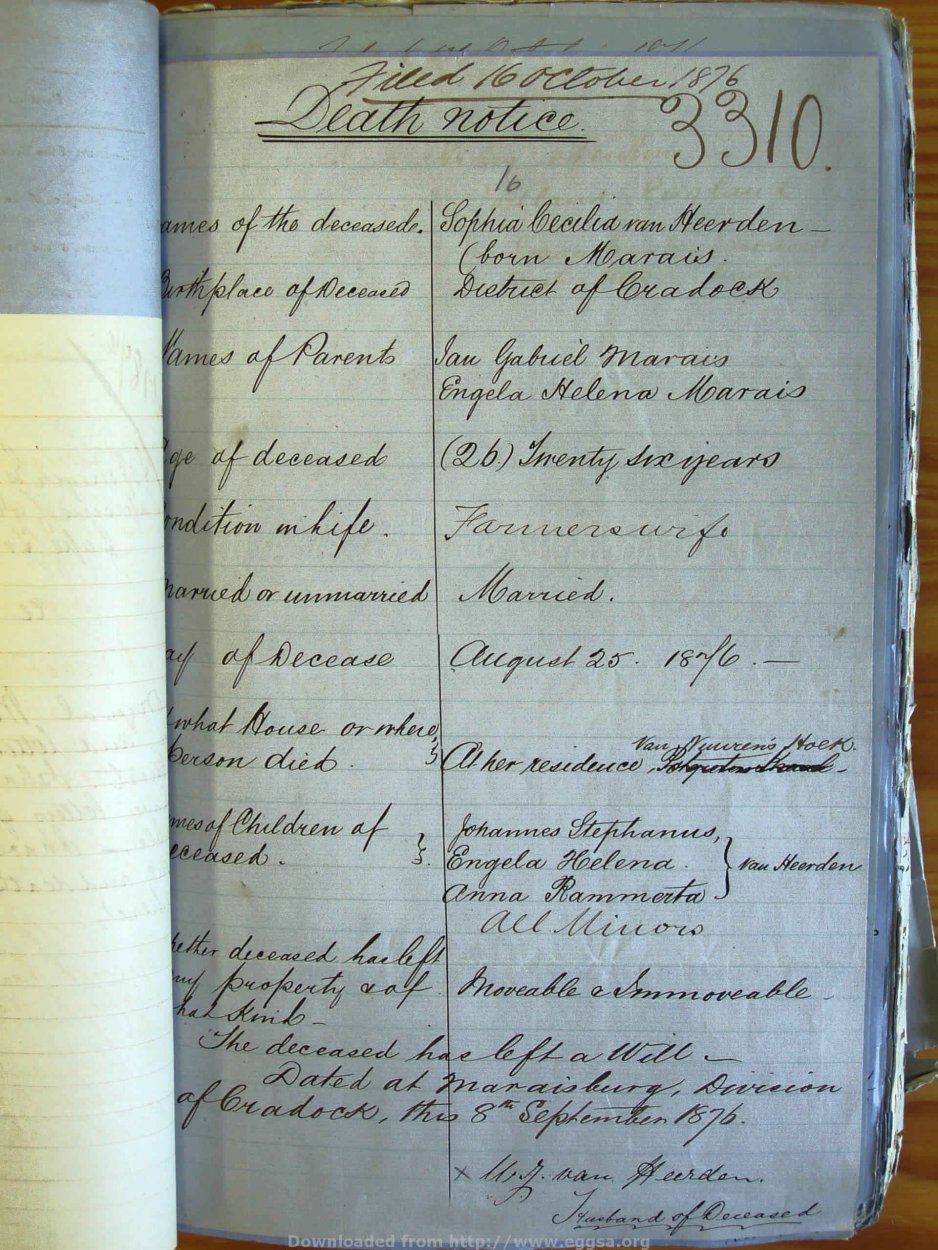 Filed 16 October 1876
Death notice.
3310.
16
ames of the deceased. Sophia Cecilia van Heerden –
(born Marais.
Birthplace of Deceased District of Cradock
Names of Parents Jan Gabriel Marais
Engela Helena Marais
Age of deceased (26.) Twenty six years
ondition in life. Farmers wife
married or unmarried Married.
ay of Decease August 25. 1876. –
what House or where
Van Vuuren's Hoek.
Person died. At her residence,
mes of Children of Johannes Stephanus,
eceased. Engela Helena. van Heerden
Anna Rammerta
All Minors
hether deceased has left
ny property & of Moveable & Immoveable –
hat Kind –
The deceased has left a Will –
Dated at Maraisburg, Division
of Cradock, this 8th September 1876.
x van Heerden.
Husband of Deceased
Downloaded from http://www.eggsa.org